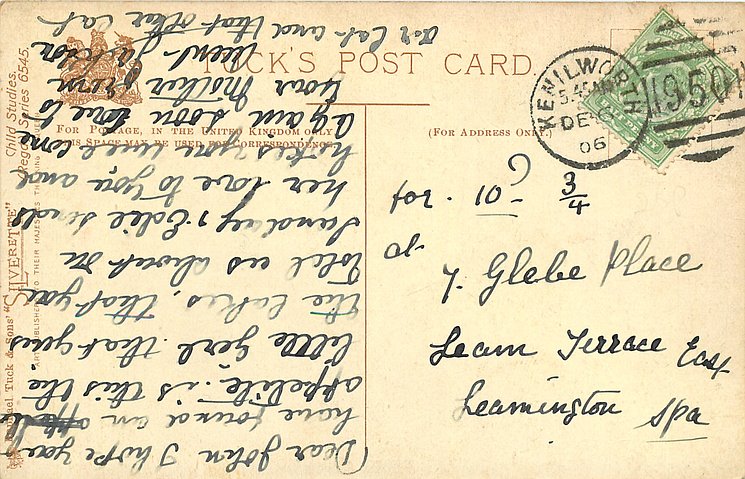 TUCK'S POST CARD.
FOR POSTAGE, IN THE UNITED KINGDOM ONLY
THIS SPACE MAY BE USED FOR CORRESPONDENCE
(FOR ADDRESS ONLY.)
KENILWORTH
5.45 AM
DE
06
1950
Dear John I hope you
have found an
appetite. is this the
little girl that gives
the babies, that you
told us about on
Sunday, Edie sends
her love to you and
hopes you will come
again soon love to
your Mother from
or Cat and that other Cat
for. 10 3/4
at
7. Glebe Place
Leam Terrace East
Leamington Spa
Raphael Tuck & Sons' "SILVERETTE"
Child Studies.
Regd Series 6545.